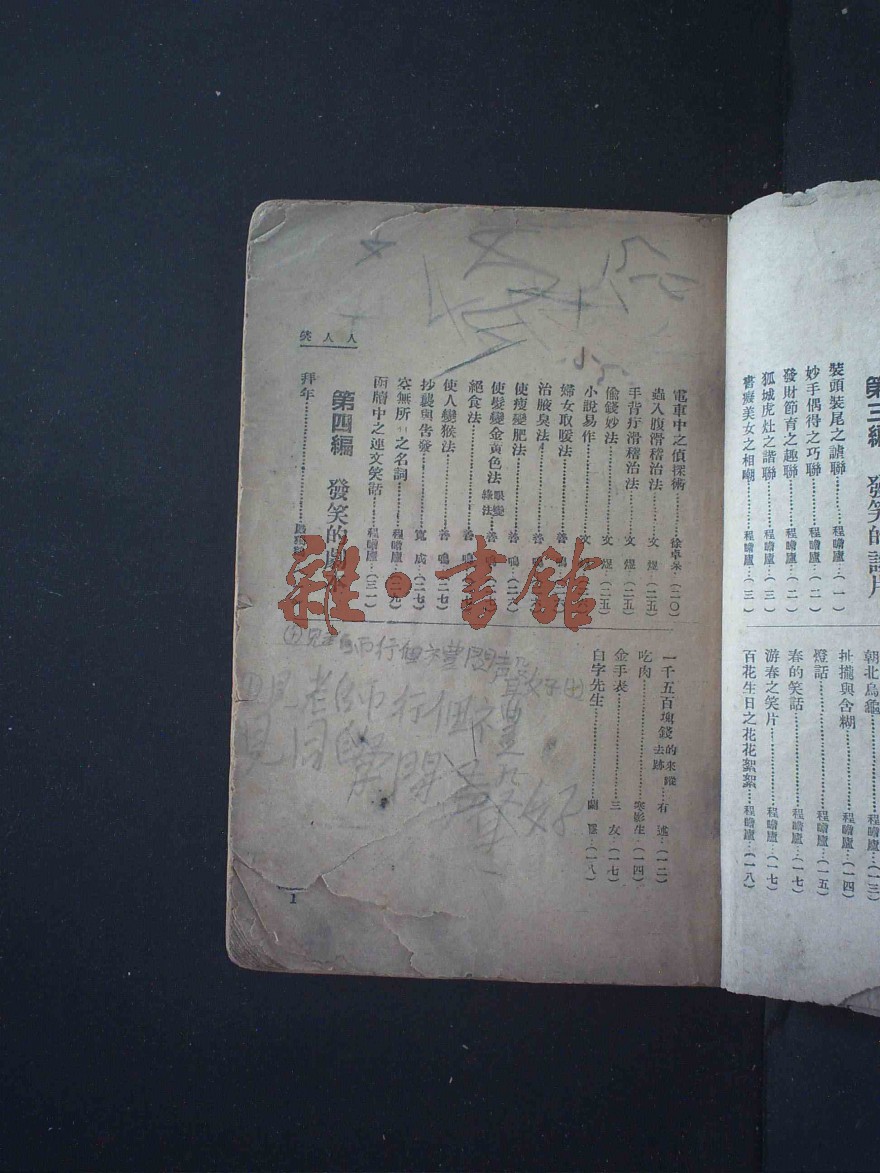 第三編　發笑的
裝頭裝尾之諧聯……程瞻廬…(一)
妙手偶得之巧聯……程瞻廬…(二)
發財節育之趣聯……程瞻廬…(二)
狐城虎灶之諧聯……程瞻廬…(三)
書癡美女之相嘲……程瞻廬…(三)
朝北烏龜……程瞻廬…(一三)
扯攏與含糊……程瞻廬…(一四)
燈話……程瞻廬…(一五)
春的笑話……程瞻廬…(一七)
游春之笑片……程瞻廬…(一七)
百花生日之花花絮絮……程瞻廬…(一八)
電車中之偵探術……徐卓呆…(二〇)
蟲入腹滑稽治法……文　煜…(二五)
手背疔滑稽治法……文　煜…(二五)
偷錢妙法……文　煜…(二五)
小說易作……文
婦女取暖法……善　鳴
治腋臭法……善　鳴
使瘦變肥法……善　鳴
使髮變金黃色法　眼變綠法……善
絕食法……善　鳴
使人變猴法……善　鳴…(二七)
抄襲與告發……寬　成…(二七)
空無所有之名詞……程瞻廬
兩牘中之連文笑話……程瞻廬…(三一)
第四編　發笑的劇本
拜年
人人笑
一千五百塊錢的來蹤去跡…有　述…(一二)
吃肉……寒影生…(一四)
金手表……三　友…(一七)
白字先生……(一八)
1
小
見老師行個禮
見同學問聲好
雜·書館